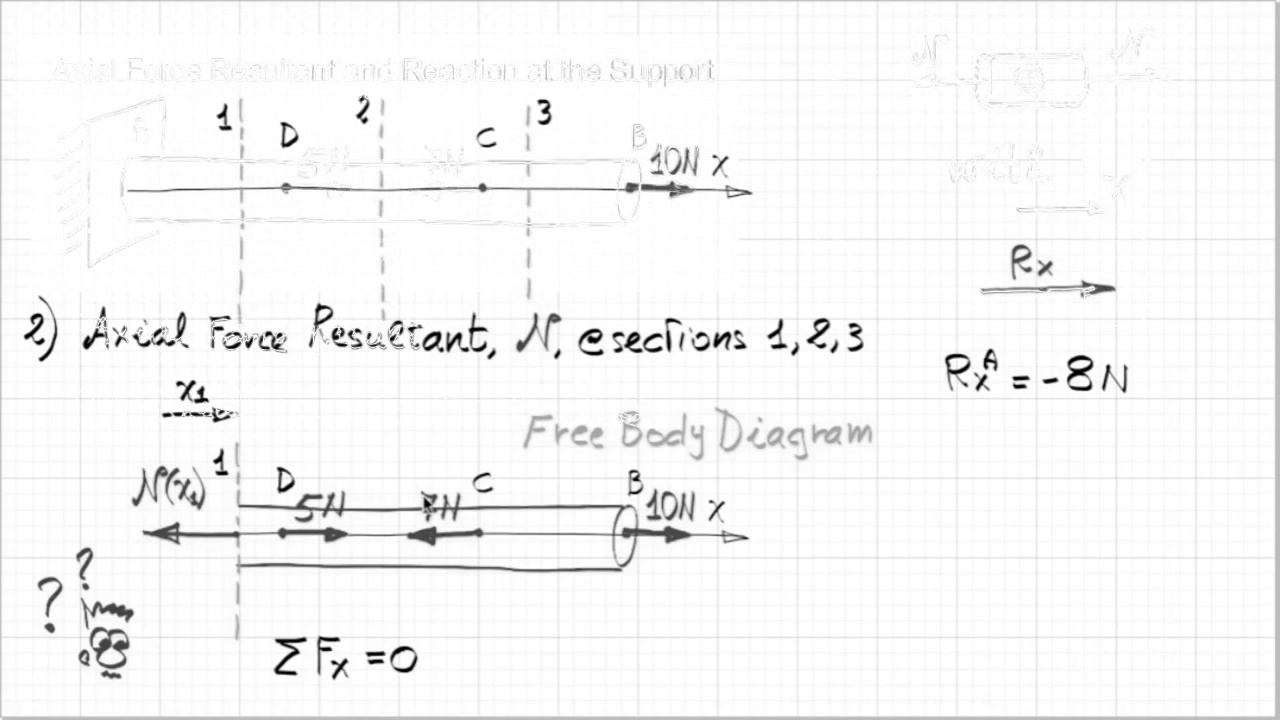 Axial Force Resultant and Reaction at the Support
N N
1 D 2 C 3 B
A 5N 7N 10N x
with
x
Rx
2) Axial Force Resultant, N, @sections 1,2,3
RxA = -8N
x1
Free Body Diagram
1 D C B
N(x1) 5N 7N 10N x
?
?
ΣFx =0